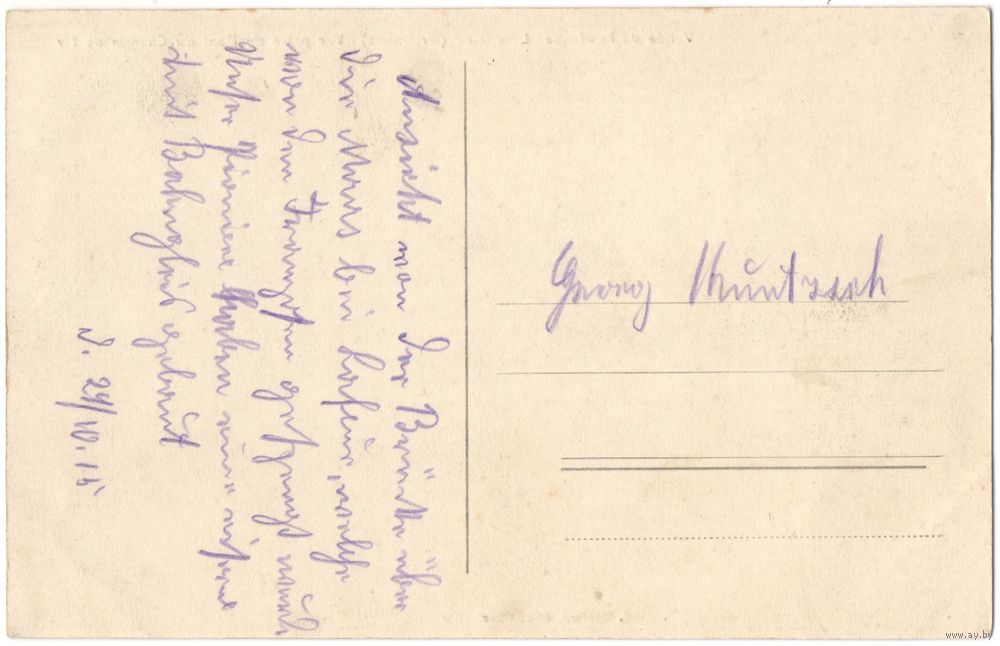 Ansicht von der Brücke über
die Maas bei welche
von den Franzosen gesprengt wurde
Unsere Pioniere haben eine
mit Bahngleis gebaut
d. 24/10.15
Georg Kuntzsch
www.ay.by